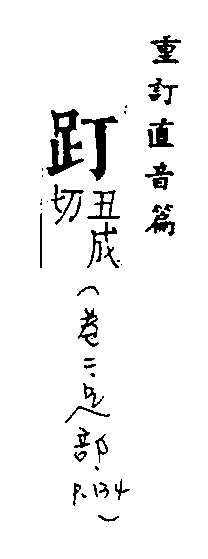 重訂直音篇
䟓
丑成
切
(卷二.足部.P.134)